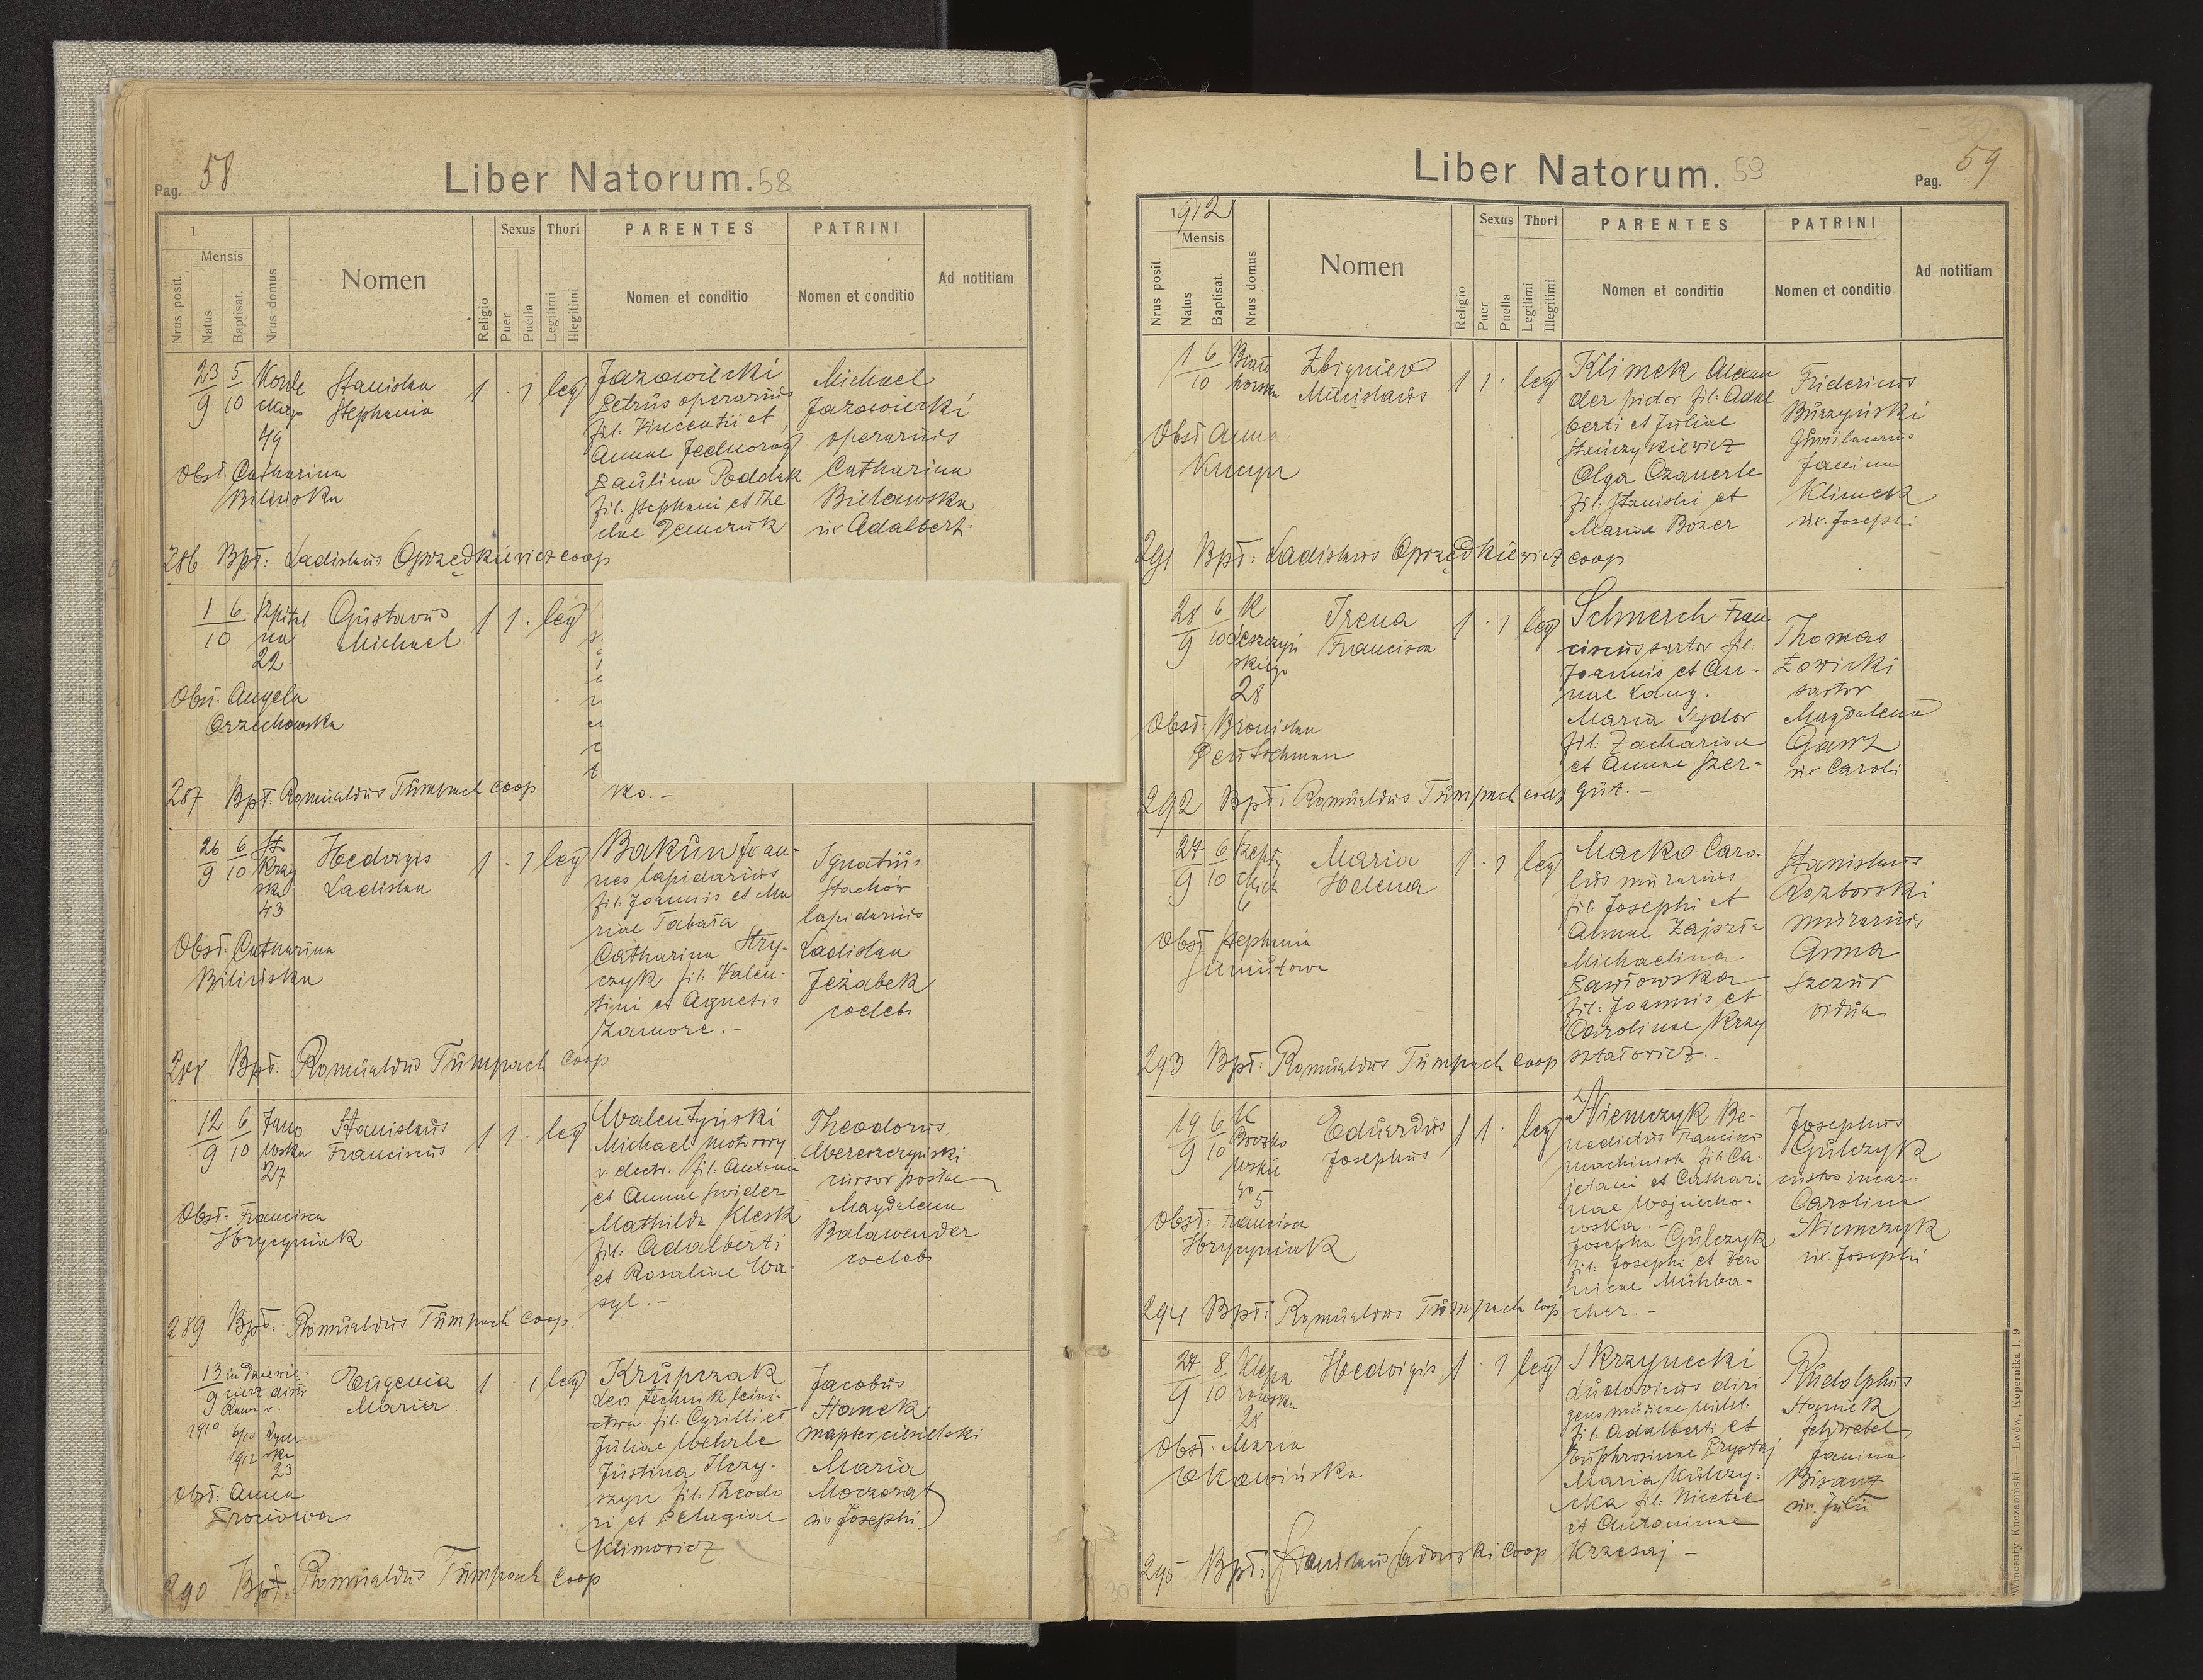 Pag. 58
Liber Natorum. 58
1
Mensis
Nrus posit.
Natus
Baptisat.
Nrus domus
Nomen
Religio
Sexus
Puer
Puella
Thori
Legitimi
Illegitimi
PARENTES
Nomen et conditio
PATRINI
Nomen et conditio
Ad notitiam
23 5
9 10
49
Stanisłaa
Stephania
1 . 1 leg
Jazowiecki
Petrus operarius
fil: Vincentii et
Annae Jednoróg
Paulina Poddak
fil: Stephani et The
Michael
Jazowiecki
operarius
Catharina
Bielawska
ux Adalberti
Obst: Catharina
Bilińska
286 Bpt: Ladislaus Oprzędkiewicz coop
1 6 Szpital
10 na
22
Gustavus
Michael
1 1 . leg
Obst: Angela
Orzechowska
287 Bpt: Romualdus Tümpach coop
ko. -
26 6 St
9 10 Kray
ska
43
Hedvigis
Ladislaa
1 . 1 leg
Bakun Joan-
nes lapidarius
fil: Joannis et Ma
riae Tabała
Catharina Stry-
czyk fil: Valen-
tini et Agnetis
Zamore. -
Ignatius
Stachów
lapidarius
Ladislaa
Jeżabek
coelebs
Obst: Catharina
Bilińska
288 Bpt: Romualdus Tümpach coop
12 6 Jano
9 10 wska
27
Stanislaus
Franciscus
1 1 . leg
Walentyński
Michael motorowy
v. electr. fil: Antonii
et Annae Swider
Mathilda Klesk
fil: Adalberti
et Rosaliae Wa-
syl. -
Theodorus
Mereszczyński
cursor postae
Magdalena
Balawender
coelebs
Obst: Francisca
Hrycyniak
289 Bpt: Romualdus Tümpach coop.
13
9
1910 6/10
1912
23
Eugenia
Maria
1 . 1 leg
Krupczak
Leo technik leśni-
ctwa fil: Cyrilli et
Juliae Wehrle
Justina Ilczy-
szyn fil: Theodo
ri et Pelagiae
Klimowicz
Jacobus
Stanek
majster ciesielski
Maria
Moczorat
ux Josephi
Obst: Anna
290 Bpt: Romualdus Tümpach coop
Liber Natorum. 59
Pag. 59
1912
Mensis
Nrus posit.
Natus
Baptisat.
Nrus domus
Nomen
Religio
Sexus
Puer
Puella
Thori
Legitimi
Illegitimi
PARENTES
Nomen et conditio
PATRINI
Nomen et conditio
Ad notitiam
1 6
10
Zbigniew
Miecislaus
1 1 . leg
Klimek Alexan
der pictor fil: Adal
berti et Juliae
Olga Czanerle
fil: Stanislai et
Mariae Bozer
Fridericus
Burzyński
Janina
Klimek
ux. Josephi
Obst Anna
291 Bpt: Ladislaus Oprzędkiewicz coop
28 6 K
9 10 Leszczyń
skiego
28
Irena
Francisca
1 . 1 leg
Schnerch Fran
ciscus sartor fil:
Joannis et An-
nae Lang.
Maria Sydor
fil: Zachariae
et Annae Szer-
gut. -
Thomas
Łowicki
sartor
Magdalena
Gawz
ux Caroli
Obst: Bronislaa
Deutschman
292 Bpt: Romualdus Tümpach coop
27 6
9 10
6
Maria
Helena
1 . 1 leg
Macko Caro-
lus murarius
fil: Josephi et
Annae Zajszła
Michaelina
Pawłowska
fil: Joannis et
Carolinae Krzy
ształowicz. -
Stanislaus
Rozborski
murarius
Anna
Szczur
vidua
Obst Stephania
293 Bpt: Romualdus Tümpach coop
19 6 K
9 10
5
Eduardus
Josephus
1 1 . leg
Niemczyk Be-
nedictus Franciscus
machinista fil: Ca-
jetani et Cathari
nae Wojciecho-
wska. -
Josepha Gulczyk
fil: Josephi et Vero
nicae Mühlba-
cher. -
Josephus
Gulczyk
Carolina
Niemczyk
ux. Josephi
Obst: Francisca
Hrycyniak
294 Bpt: Romualdus Tümpach coop
27 8
9 10
28
Hedvigis
1 . 1 leg
Skrzynecki
Ludovicus diri
gens musicae milit.
fil: Adalberti et
Euphrosinae Prystaj
Maria Kulczy-
cka fil: Nicetae
et Antoninae
Krzesaj. -
Rudolphus
Stanek
feldwebel
Janina
Bisanz
ux. Julii
Obst: Maria
295 Bpt: Stanislaus Sadowski coop
Wincenty Kuczabiński. — Lwów, Kopernika l. 9
30